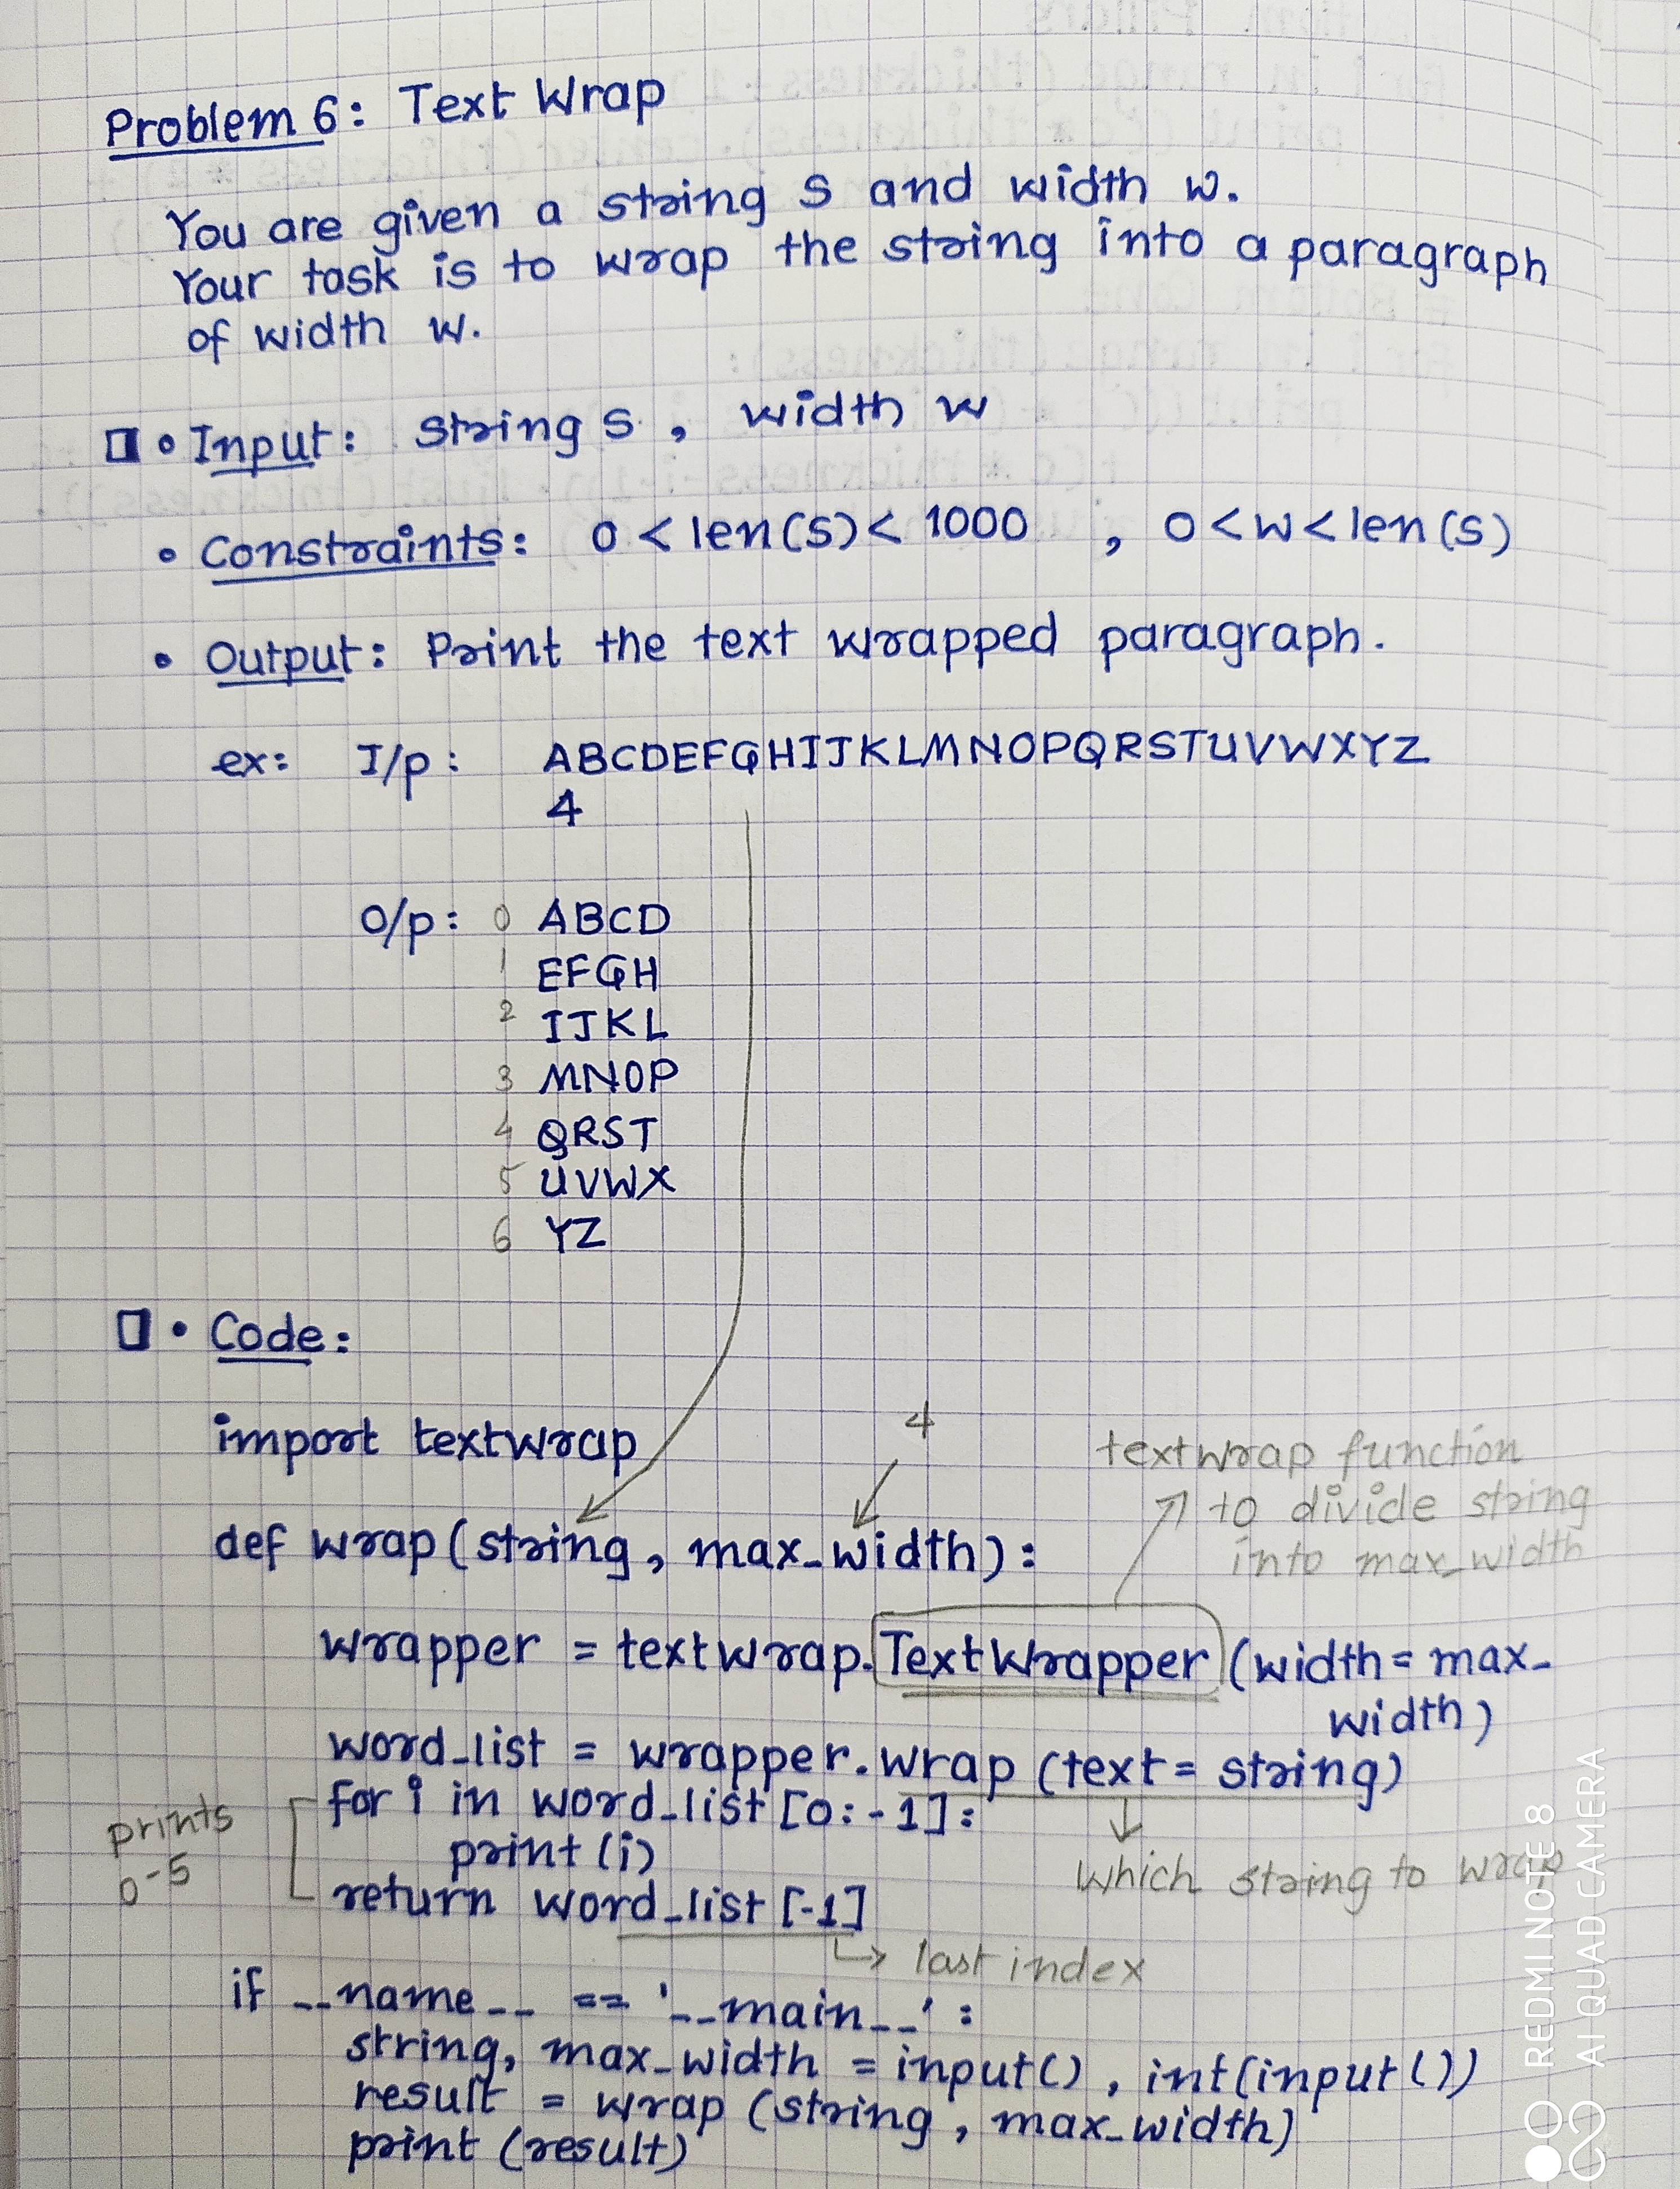 Problem 6: Text Wrap
You are given a string S and width w.
Your task is to wrap the string into a paragraph
of width w.
• Input: string S, width w
• Constraints: 0 < len(S) < 1000 , 0 < w < len(S)
• Output: Print the text wrapped paragraph.
ex: I/p: ABCDEFGHIJKLMNOPQRSTUVWXYZ
4
O/p: 0 ABCD
1 EFGH
2 IJKL
3 MNOP
4 QRST
5 UVWX
6 YZ
• Code:
import textwrap
4
textwrap function
to divide string
into max_width
def wrap(string, max_width):
wrapper = textwrap.TextWrapper(width=max_
width)
word_list = wrapper.wrap(text=string)
for i in word_list[0:-1]:
print(i)
return word_list[-1]
prints
0-5
which string to wrap
last index
if __name__ == '__main__':
string, max_width = input(), int(input())
result = wrap(string, max_width)
print(result)
REDMI NOTE 8
AI QUAD CAMERA